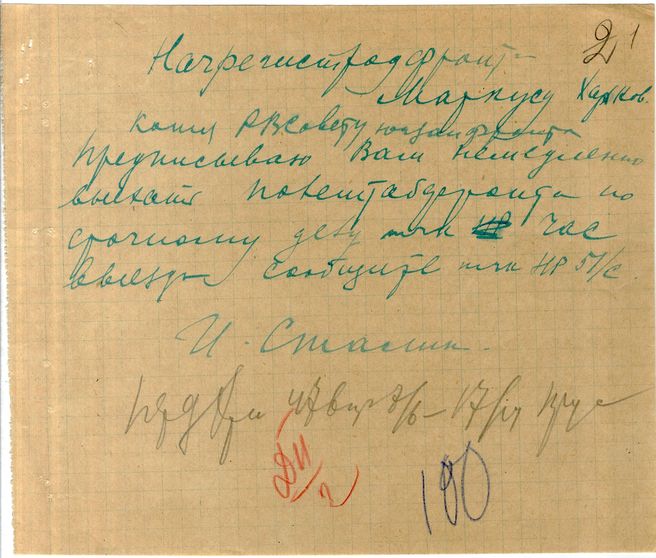 2 1
Начрегистродфронт
Маркусу Харков.
копия РВСовету югзапфронта
Предписываю Вам немедленно
выехать полештабфронта по
срочному делу тчк час
выезда сообщите тчк НР 51/с.
И. Сталин.
17/IV
ДИ/2
100